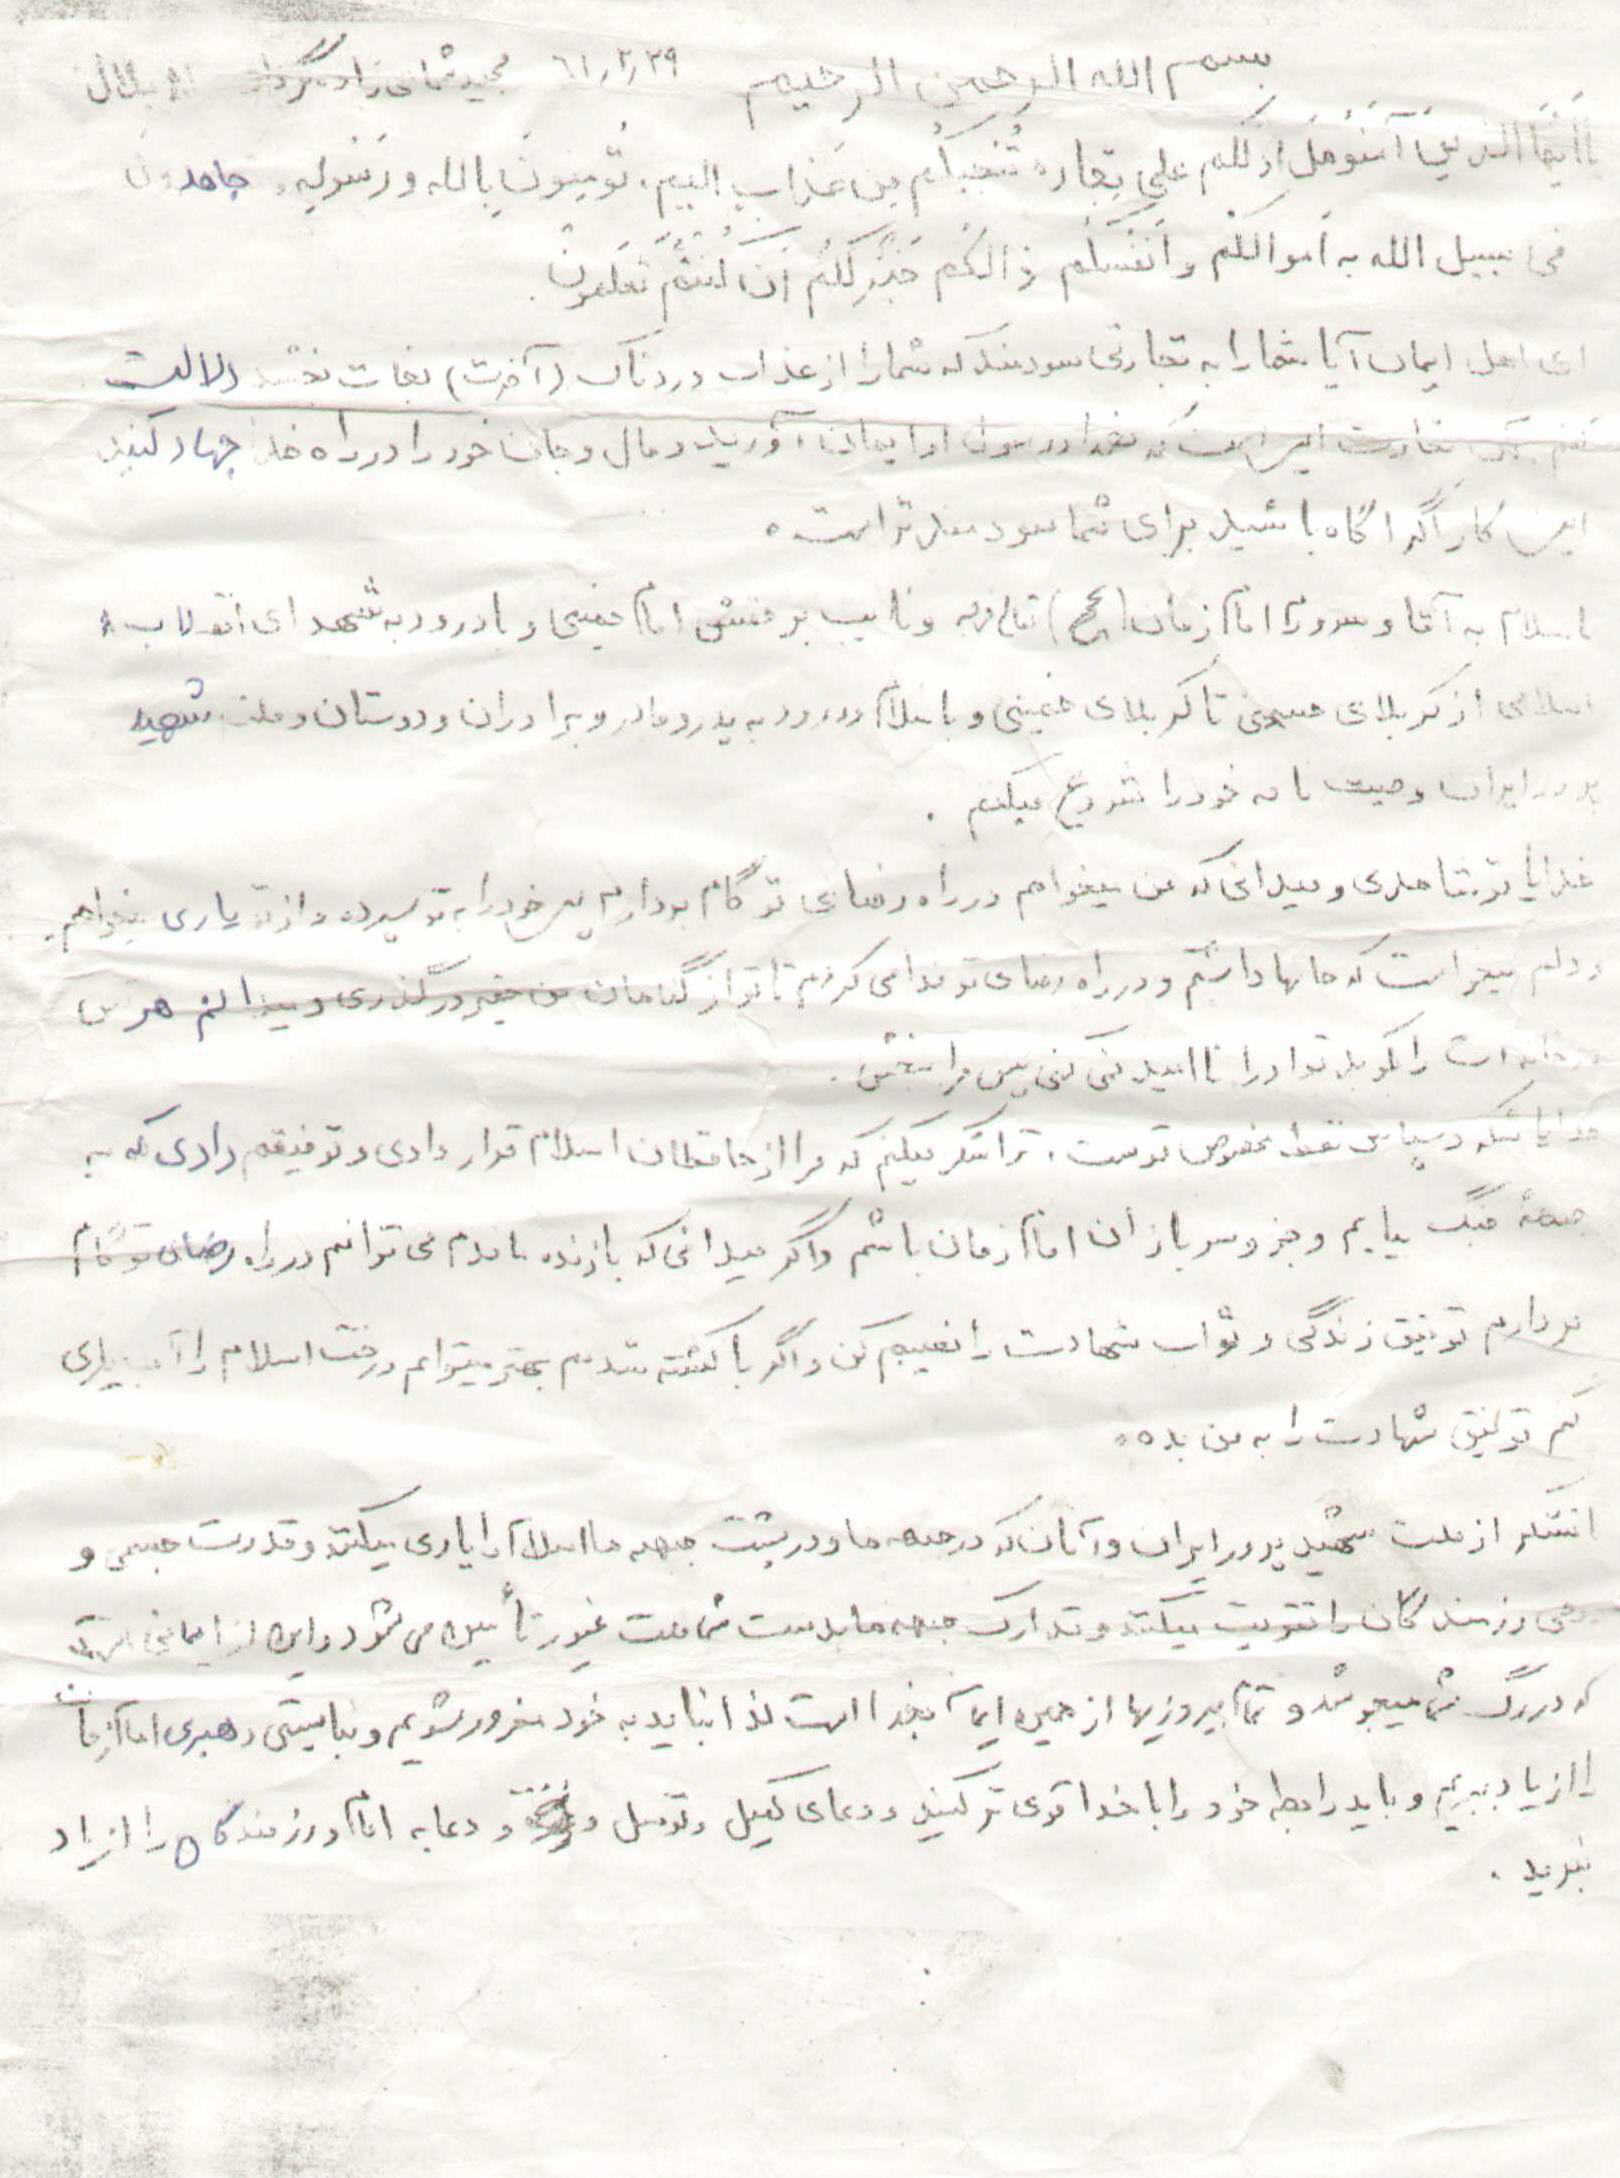 بسم الله الرحمن الرحیم ۶۱٫۲٫۲۹ مجید
یا ایها الذینَ آمنو هل ادلکم علی تجاره تُنجیکُم مِن عَذابٍ الیم، تُومِنونَ بالله و رَسُولِه و جاهدون
فی سبیل الله به اَموالکُم و اَنفُسکُم ذالکُم خَیرُ لَکُم اَن کُنتُم تَعلَمونْ .
ای اهل ایمان آیا شما را به تجارتی سودمند که شما را از عذاب دردناک (آخرت) نجات بخشد دلالت
کنم تجارت این است که بخدا و رسول او ایمان آورید و مال و جان خود را در راه خدا جهاد کنید
این کار اگر اگاه باشید برای شما سودمندتر است .
با سلام به آقا و سرورم امام زمان (عج) و نایب بر حقش امام خمینی و با درود به شهدای انقلاب
اسلامی از کربلای حسینی تا کربلای خمینی و با سلام و درود به پدر و مادر و برادران و دوستان و ملت شهید
پرور ایران وصیت نامه خود را شروع میکنم .
خدایا تو شاهدی و میدانی که من میخواهم در راه رضای تو گام بردارم پس خود را به تو سپرده و از تو یاری میخواهم.
و دلم میخواست که جانها داشتم و در راه رضای تو فدا می کردم تا تو از گناهان من حقیر درگذری و میدانم هر کس
در خانه ات را بکوبد تو او را نا امید نمی کنی پس مرا ببخش .
خدایا شکر و سپاس فقط مخصوص توست . ترا شکر میکنم که مرا از حافظان اسلام قرار دادی و توفیقم دادی که به
جبههٔ جنگ بیایم و جزو سربازان امام زمان باشم و اگر میدانی که با زنده ماندم می توانم در راه رضای تو گام
بردارم توفیق زندگی و ثواب شهادت را نصیبم کن و اگر با کشته شدنم بهتر میتوانم درخت اسلام را آبیاری
کنم توفیق شهادت را به من بده .
از ملت شهید پرور ایران و آنان که در جبهه ها و در پشت جبهه ها اسلام را یاری میکنند و قدرت جسمی و
روحی رزمندگان را تقویت میکنند و تدارک جبهه ها بدست شما ملت غیور تأمین می شود و این از ایمانی است
که در رگ شما میجوشد و تمام پیروزیها از همین ایمان بخدا است لذا نباید به خود مغرور شویم و نبایستی رهبری امام زمان
را از یاد ببریم و باید رابطه خود را با خدا قوی تر کنید و دعای کمیل و توسل و و دعا به امام و رزمندگان را از یاد
نبرید .